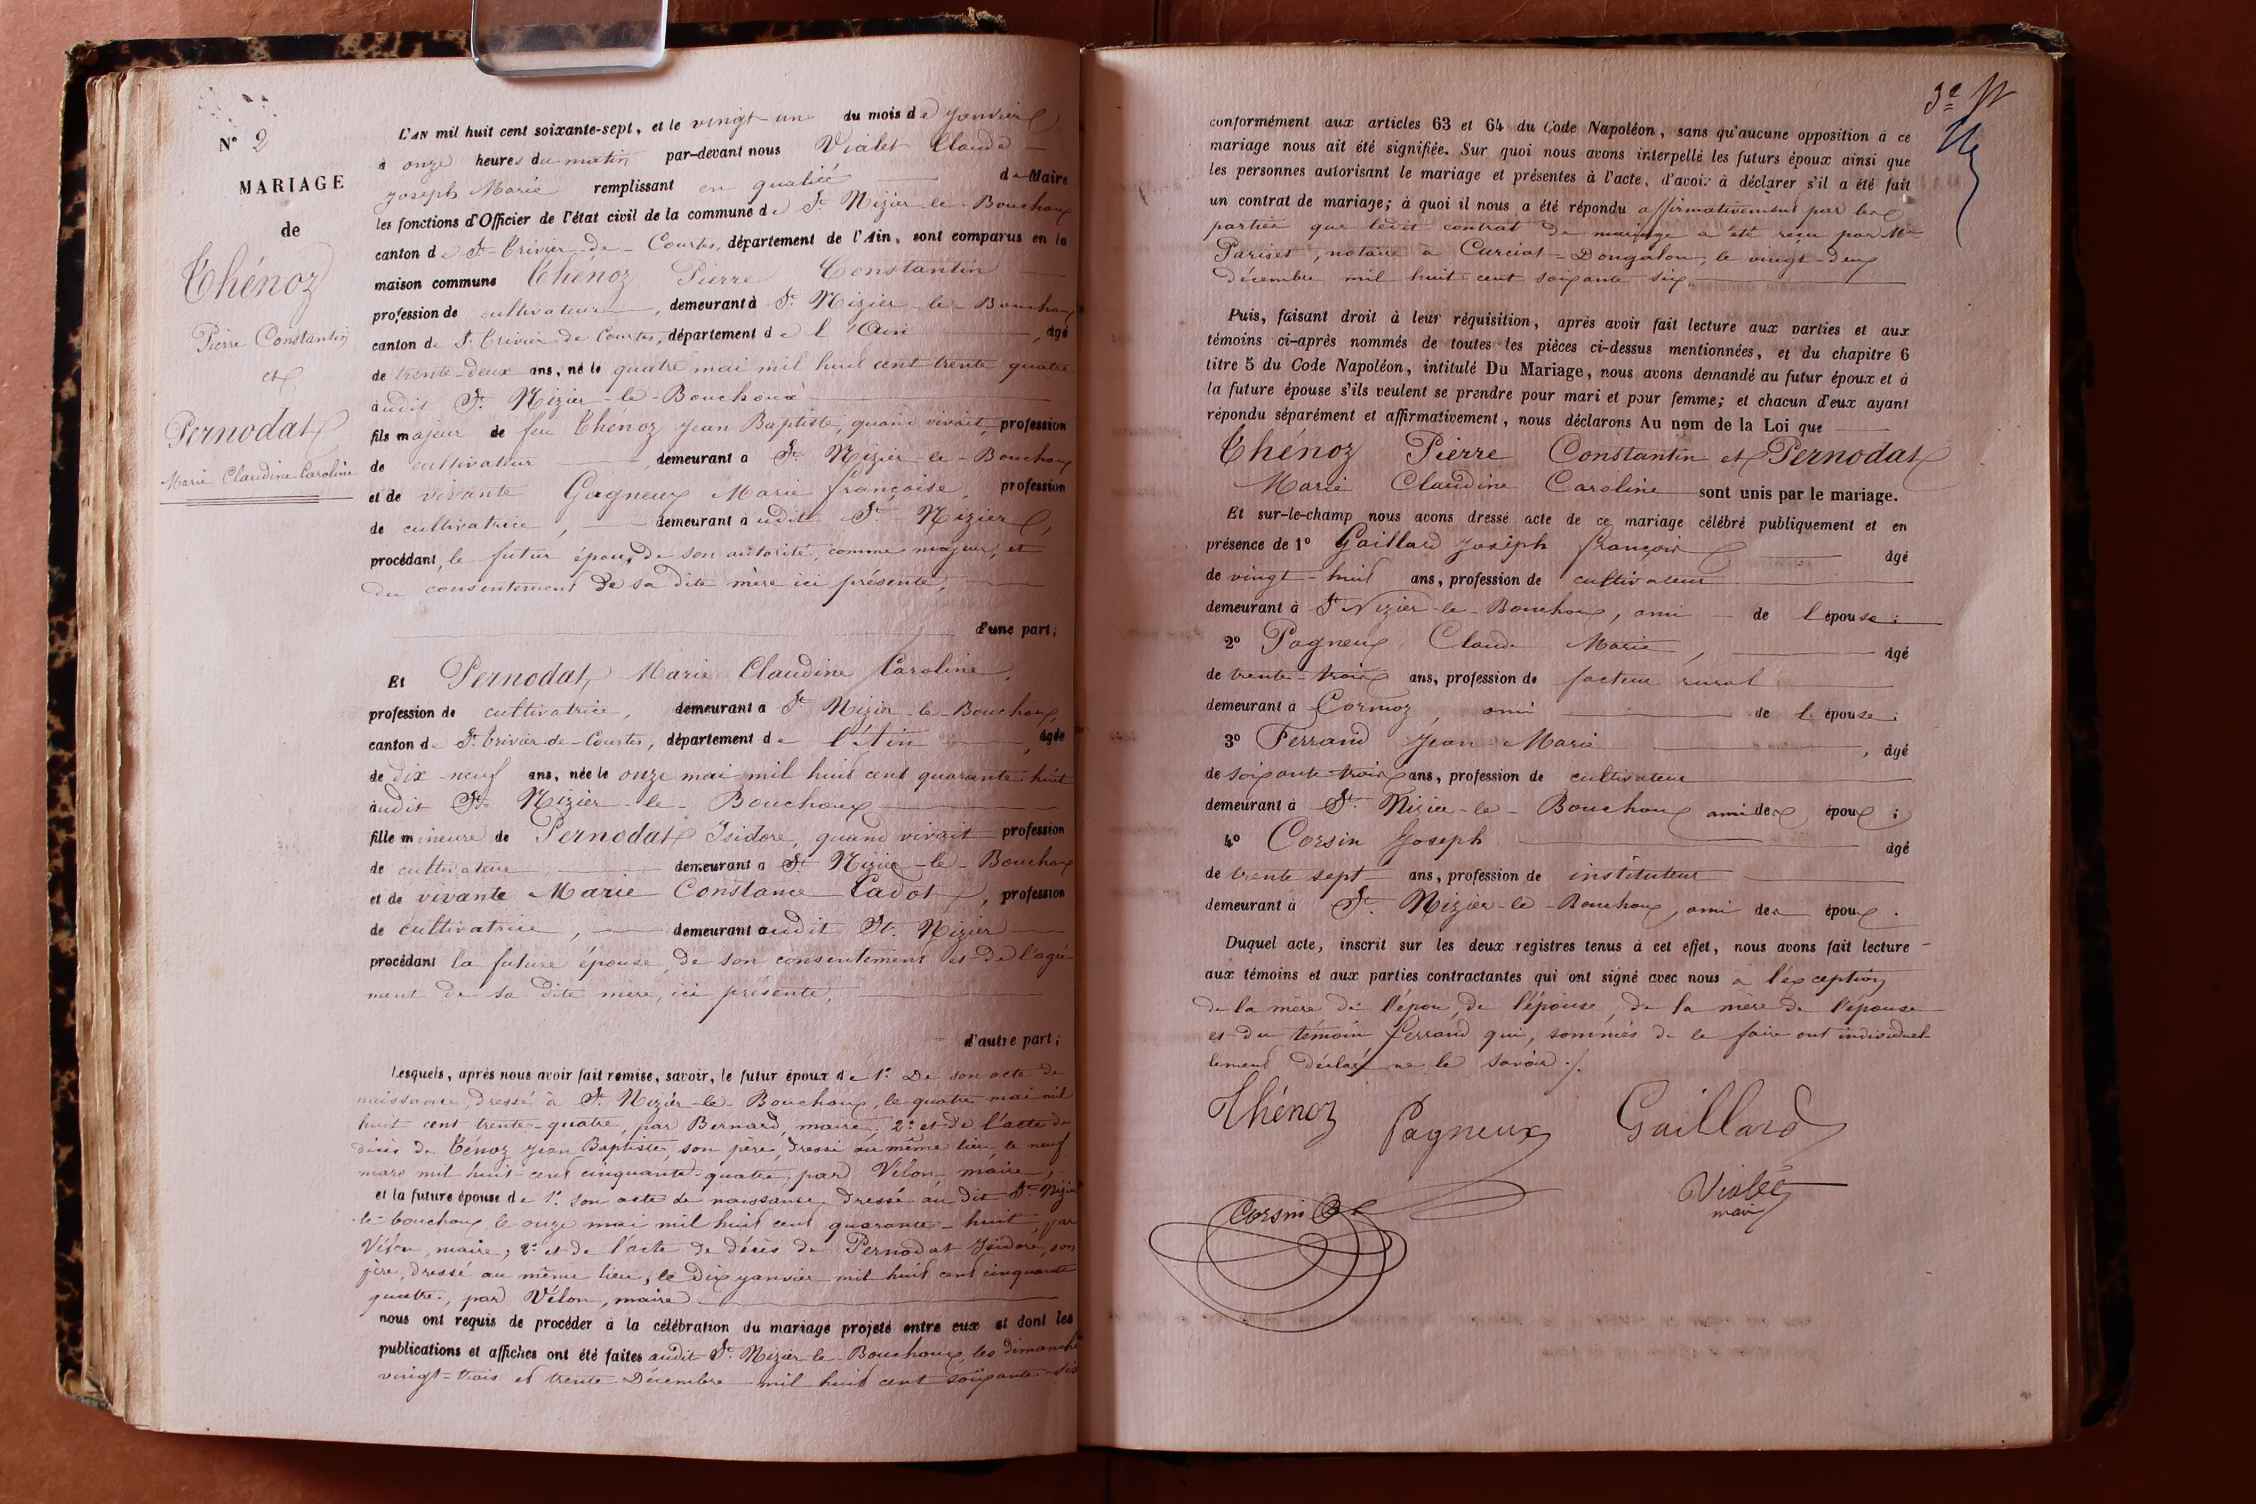 N° 2
MARIAGE
de
Thénoz
Pierre Constantin
et
Pernodat
Marie Claudine Caroline
L'AN mil huit cent soixante-sept, et le vingt-un du mois de Janvier
à onze heures du matin par-devant nous Vialet Claude
Joseph Marie remplissant en qualité de Maire
les fonctions d'Officier de l'état civil de la commune de St Nizier-le-Bouchoux
canton de St Trivier-de-Courtes, département de l'Ain, sont comparus en la
maison commune Thénoz Pierre Constantin
profession de cultivateur, demeurant à St Nizier-le-Bouchoux
canton de St Trivier de Courtes, département de l'Ain, âgé
de trente-deux ans, né le quatre mai mil huit cent trente quatre
audit St Nizier-le-Bouchoux
fils majeur de feu Thénoz Jean Baptiste, quand vivait, profession
de cultivateur, demeurant à St Nizier-le-Bouchoux
et de vivante Gagneux Marie françoise, profession
de cultivatrice, demeurant audit St Nizier,
procédant, le futur époux, de son autorité, comme majeur, et
du consentement de sa dite mère ici présente,
d'une part;
Et Pernodat, Marie Claudine Caroline,
profession de cultivatrice, demeurant à St Nizier-le-Bouchoux,
canton de St Trivier-de-Courtes, département de l'Ain, âgée
de dix-neuf ans, née le onze mai mil huit cent quarante-huit
audit St Nizier-le-Bouchoux
fille mineure de Pernodat Isidore, quand vivait profession
de cultivateur demeurant à St Nizier-le-Bouchoux
et de vivante Marie Constance Cadot, profession
de cultivatrice, demeurant audit St Nizier
procédant la future épouse, de son consentement et de l'agré-
ment de sa dite mère, ici présente,
d'autre part;
Lesquels, après nous avoir fait remise, savoir, le futur époux de 1° De son acte de
naissance, dressé à St Nizier-le-Bouchoux, le quatre mai mil
huit cent trente-quatre, par Bernard, maire; 2° et de l'acte de
décès de Ténoz Jean Baptiste, son père, dressé au même lieu, le neuf
mars mil huit cent cinquante-quatre, par Vélon, maire;
et la future épouse de 1° son acte de naissance, dressé au dit St Nizier
le-bouchoux le onze mai mil huit cent quarante-huit, par
Vélon, maire; 2° et de l'acte de décès de Pernodat Isidore, son
père, dressé au même lieu, le dix janvier mil huit cent cinquante
quatre, par Vélon, maire
nous ont requis de procéder à la célébration du mariage projeté entre eux et dont les
publications et affiches ont été faites audit St Nizier-le-Bouchoux, les dimanches
vingt-trois et trente Décembre mil huit cent soixante-six
conformément aux articles 63 et 64 du Code Napoléon, sans qu'aucune opposition à ce
mariage nous ait été signifiée. Sur quoi nous avons interpellé les futurs époux ainsi que
les personnes autorisant le mariage et présentes à l'acte, d'avoir à déclarer s'il a été fait
un contrat de mariage; à quoi il nous a été répondu affirmativement par les
parties que ledit contrat de mariage a été reçu par Me
Parisot, notaire à Curciat-Dongalon, le vingt-deux
décembre mil huit cent soixante six.
Puis, faisant droit à leur réquisition, après avoir fait lecture aux parties et aux
témoins ci-après nommés de toutes les pièces ci-dessus mentionnées, et du chapitre 6
titre 5 du Code Napoléon, intitulé Du Mariage, nous avons demandé au futur époux et à
la future épouse s'ils veulent se prendre pour mari et pour femme; et chacun d'eux ayant
répondu séparément et affirmativement, nous déclarons Au nom de la Loi que
Thénoz Pierre Constantin et Pernodat
Marie Claudine Caroline sont unis par le mariage.
Et sur-le-champ nous avons dressé acte de ce mariage célébré publiquement et en
présence de 1° Gaillard Joseph françois âgé
de vingt-huit ans, profession de cultivateur
demeurant à St Nizier-le-Bouchoux, ami de l'épouse;
2° Pagneux Claude Marie, âgé
de trente-trois ans, profession de facteur rural
demeurant à Cormoz, ami de l'épouse;
3° Ferrand Jean Marie, âgé
de soixante-trois ans, profession de cultivateur
demeurant à St Nizier-le-Bouchoux ami de époux;
4° Corsin Joseph âgé
de trente sept ans, profession de instituteur
demeurant à St Nizier-le-Bouchoux, ami de époux.
Duquel acte, inscrit sur les deux registres tenus à cet effet, nous avons fait lecture
aux témoins et aux parties contractantes qui ont signé avec nous à l'exception
de la mère de l'époux, de l'épouse, de la mère de l'épouse
et du témoin Ferrand qui, sommés de le faire ont individuel-
lement déclaré ne le savoir.
Thénoz Pagneux Gaillard
Corsin Vialet
maire